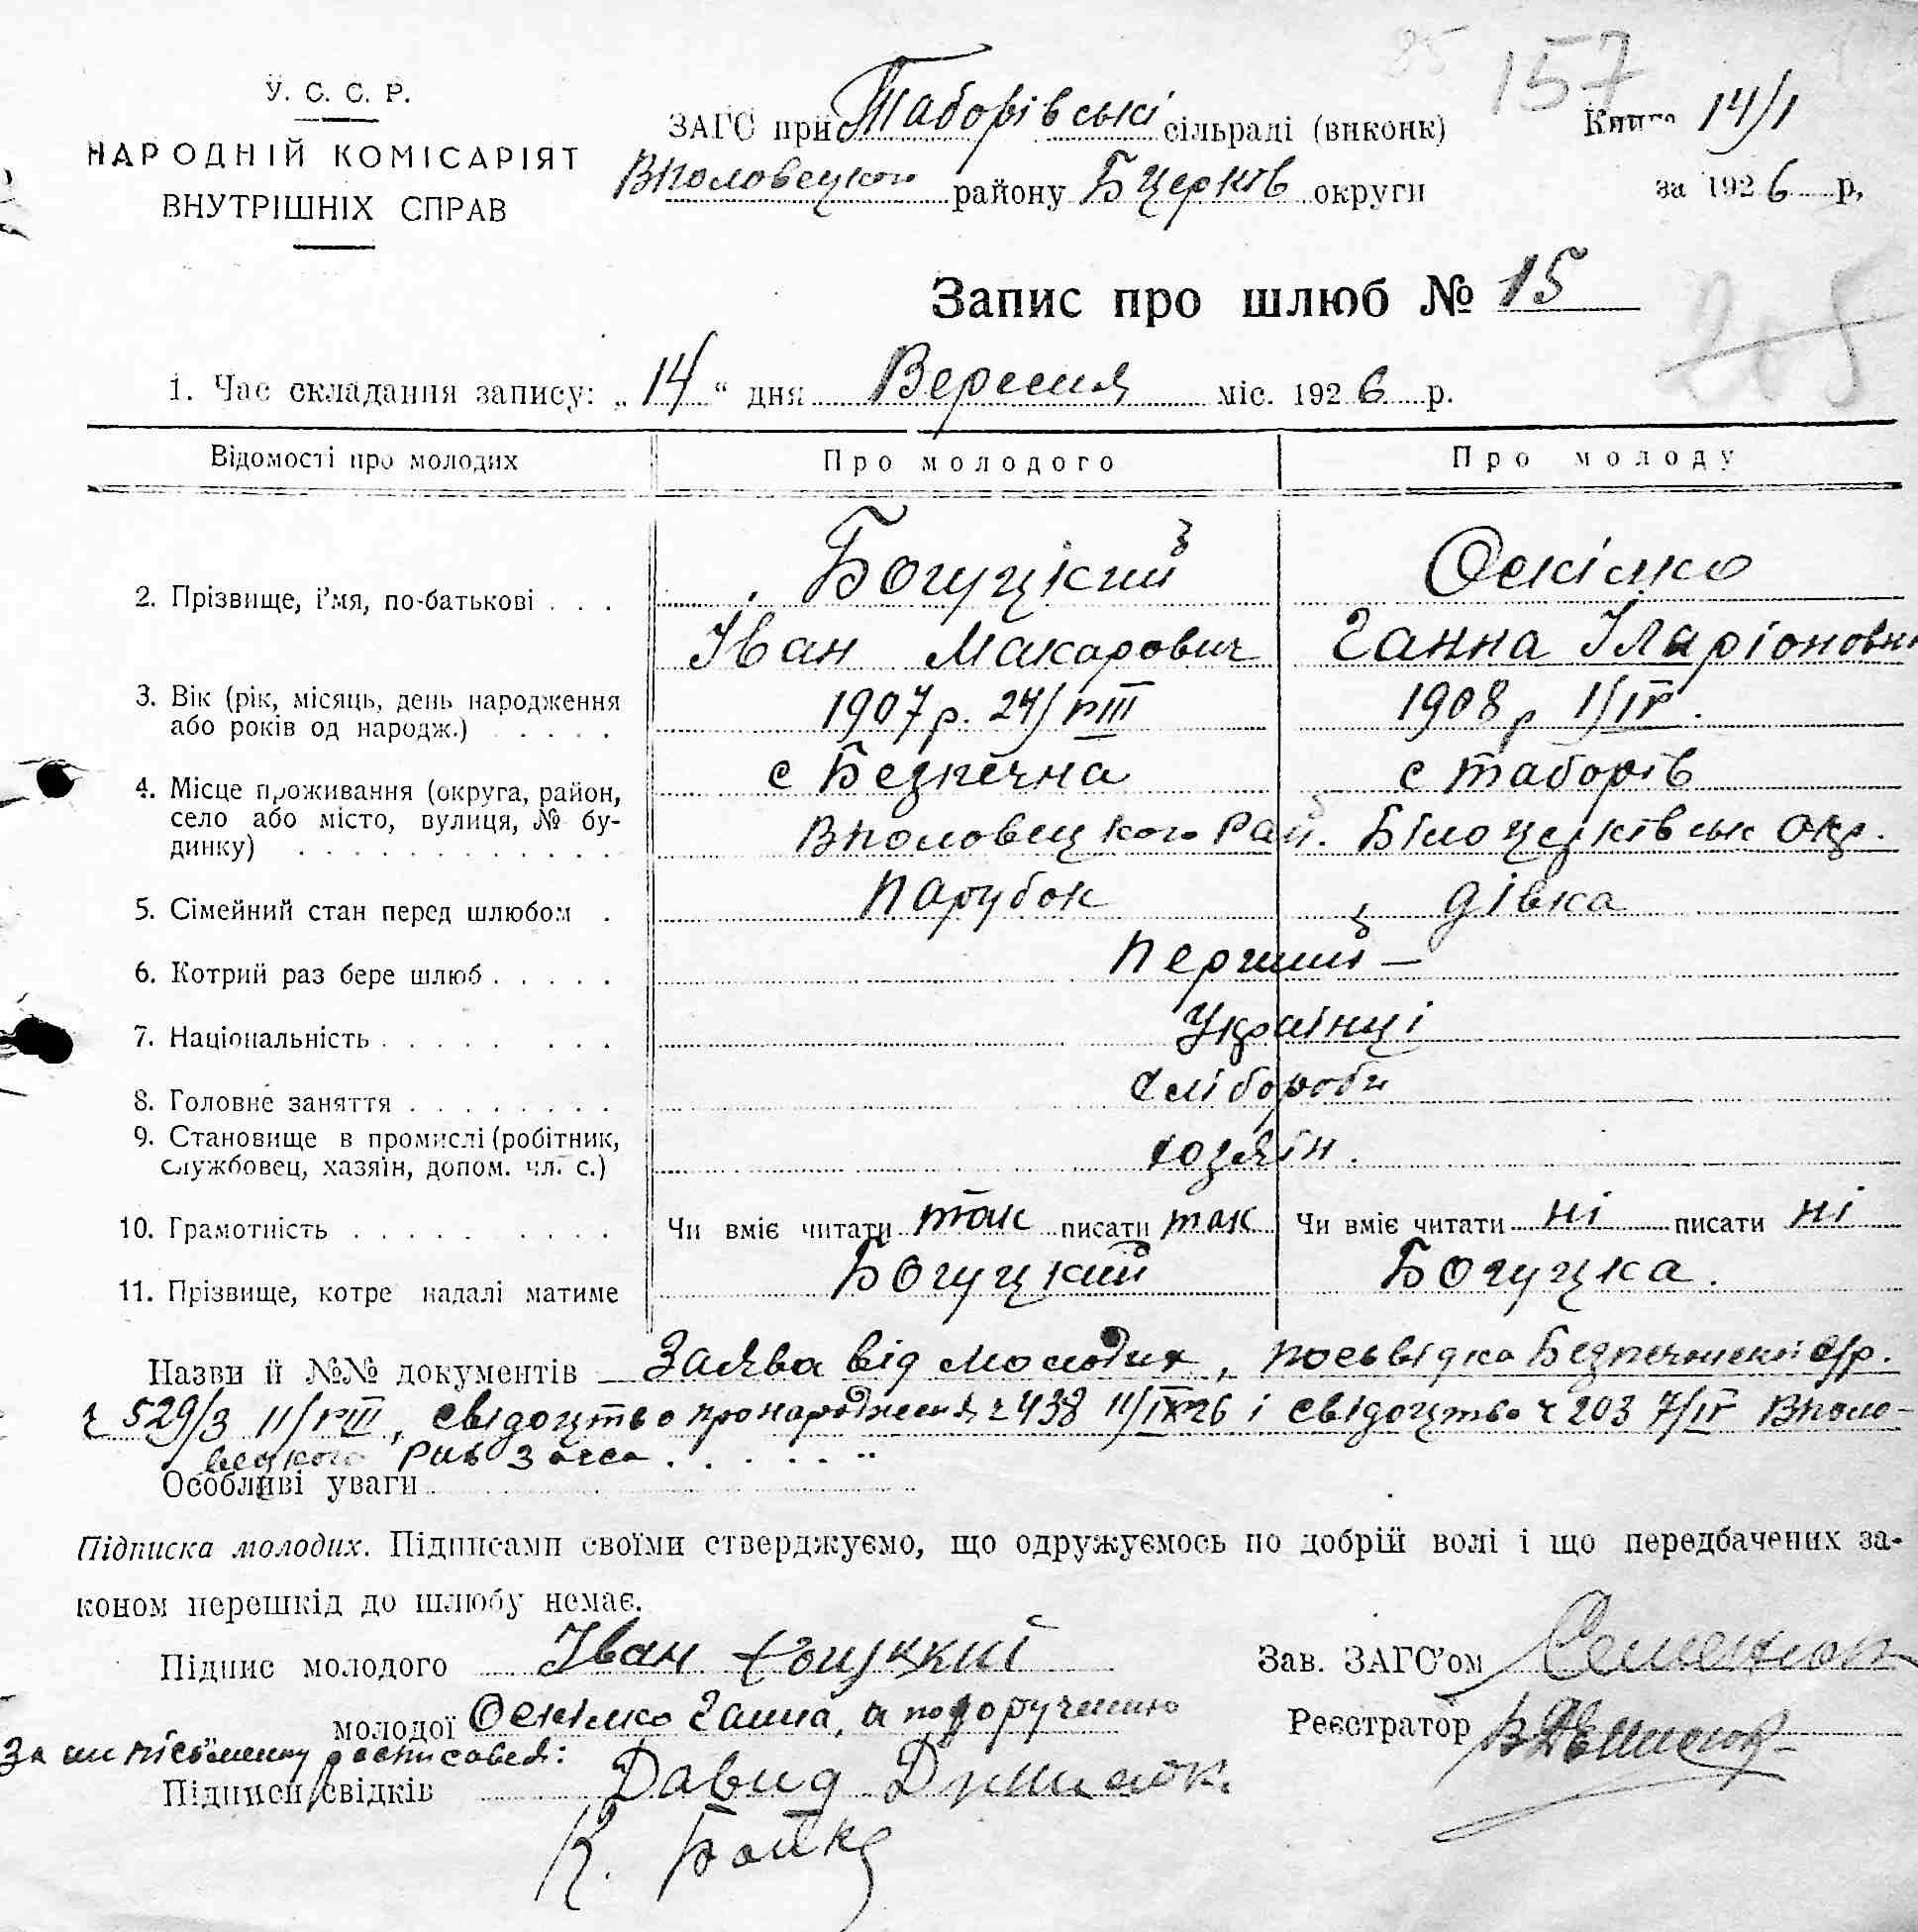 85 157
У. С. С. Р.
НАРОДНІЙ КОМІСАРІЯТ
ВНУТРІШНІХ СПРАВ
ЗАГС при Таборівські сільраді (виконк)
Вполовецкого району БЦерків округи
Книга 14/1
за 1926 р.
Запис про шлюб № 15
205
1. Час складання запису: „14“ дня Вересня міс. 1926 р.
Відомості про молодих Про молодого Про молоду
2. Прізвище, і’мя, по-батькові . . . Богуцкий Оскілко
Іван Макарович Ганна Іларіоновна
3. Вік (рік, місяць, день народження 1907 р. 24/VIII 1908 р 1/IV.
або років од народж.) . . . . .
с Безпечна с таборів
4. Місце проживання (округа, район,
село або місто, вулиця, № бу- Вполовецкого Рай. Білоцерківськ окр.
динку) . . . . . . . . . . . .
5. Сімейний стан перед шлюбом . парубок дівка
6. Котрий раз бере шлюб . . . . . перший —
7. Національність . . . . . . . . Українці
8. Головне заняття . . . . . . . . хлібороби
9. Становище в промислі (робітник, хозяїн.
службовец, хазяїн, допом. чл. с.)
10. Грамотність . . . . . . . . . . Чи вміє читати так писати так Чи вміє читати ні писати ні
11. Прізвище, котре надалі матиме Богуцкий Богуцка.
Назви й №№ документів Заява від молодих, посьвідка Безпеченскої с/р.
ч 529/3 11/VIII, свідоцтво про народження ч 438 11/IX 26 і свідоцтво ч 203 7/IV Вполо-
вецкого Рив Загса . . . . .
Особливі уваги
Підписка молодих. Підписами своїми стверджуємо, що одружуємось по добрій волі і що передбачених за-
коном перешкід до шлюбу немає.
Підпис молодого Іван Богуцкий
Зав. ЗАГС’ом Семенюк
молодої Оскілко Ганна, а по доручению
Реєстратор
за ни письменну росписався:
Підписи свідків Давид
К. Бойко